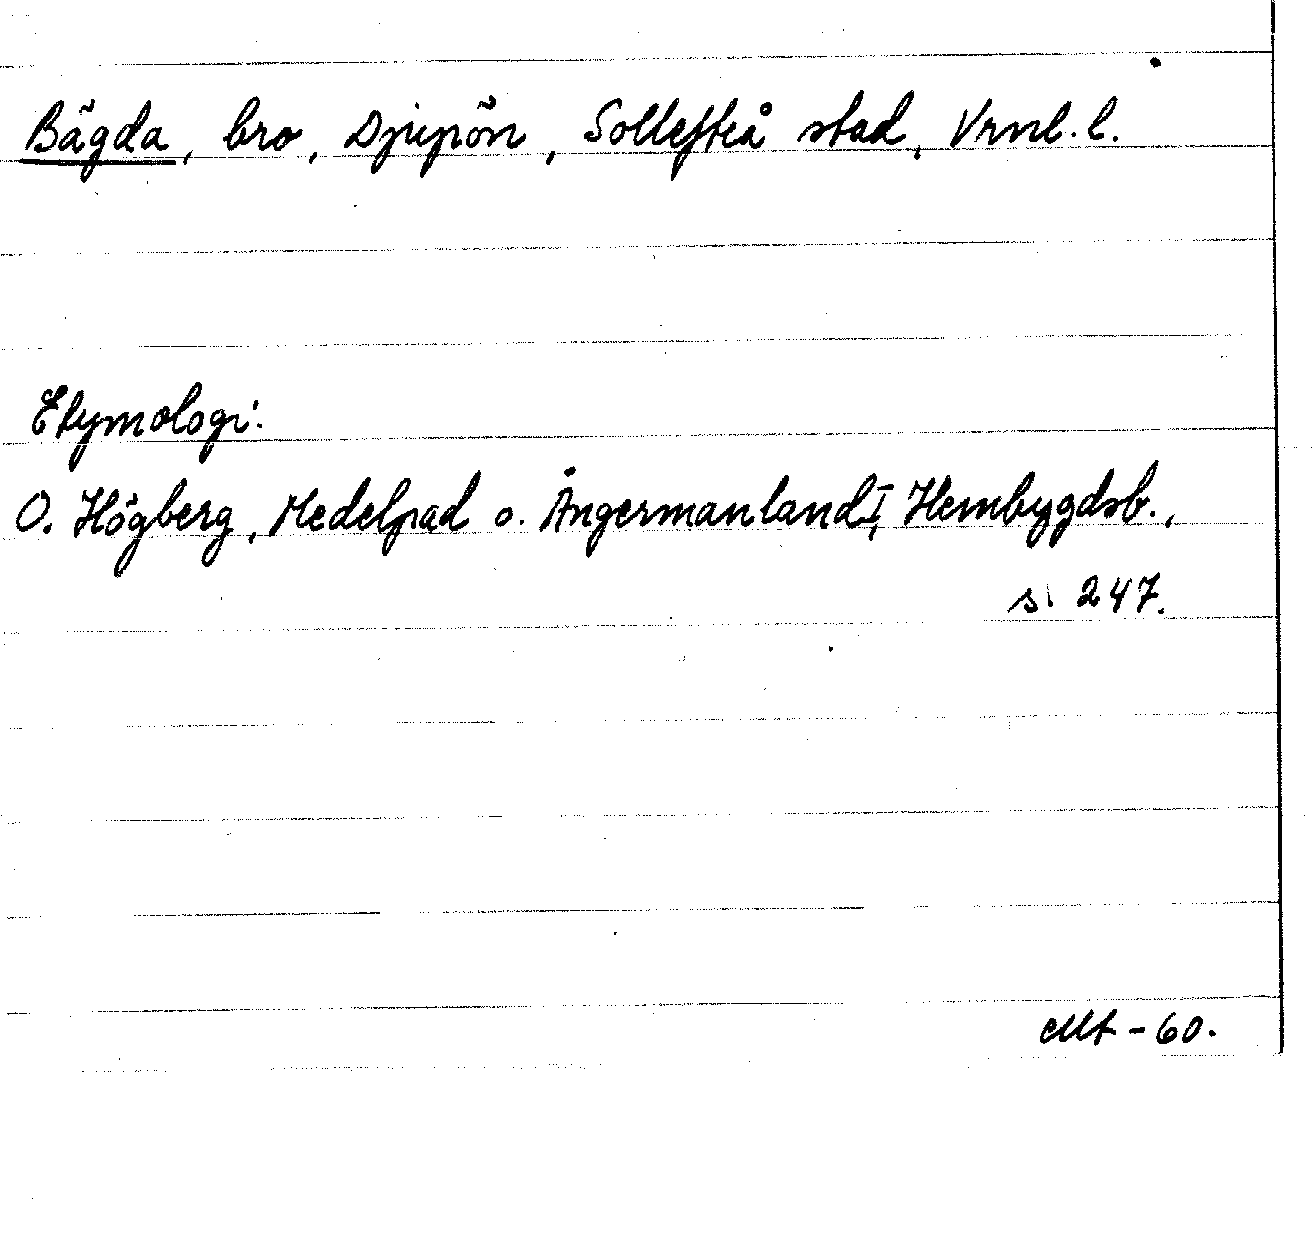 Bägda, bro, Djupön, Sollefteå stad, Vrnl. l.
Etymologi:
O. Högberg, Medelpad o. Ångermanland I, Hembygdsb.,
s. 247.
- 60.